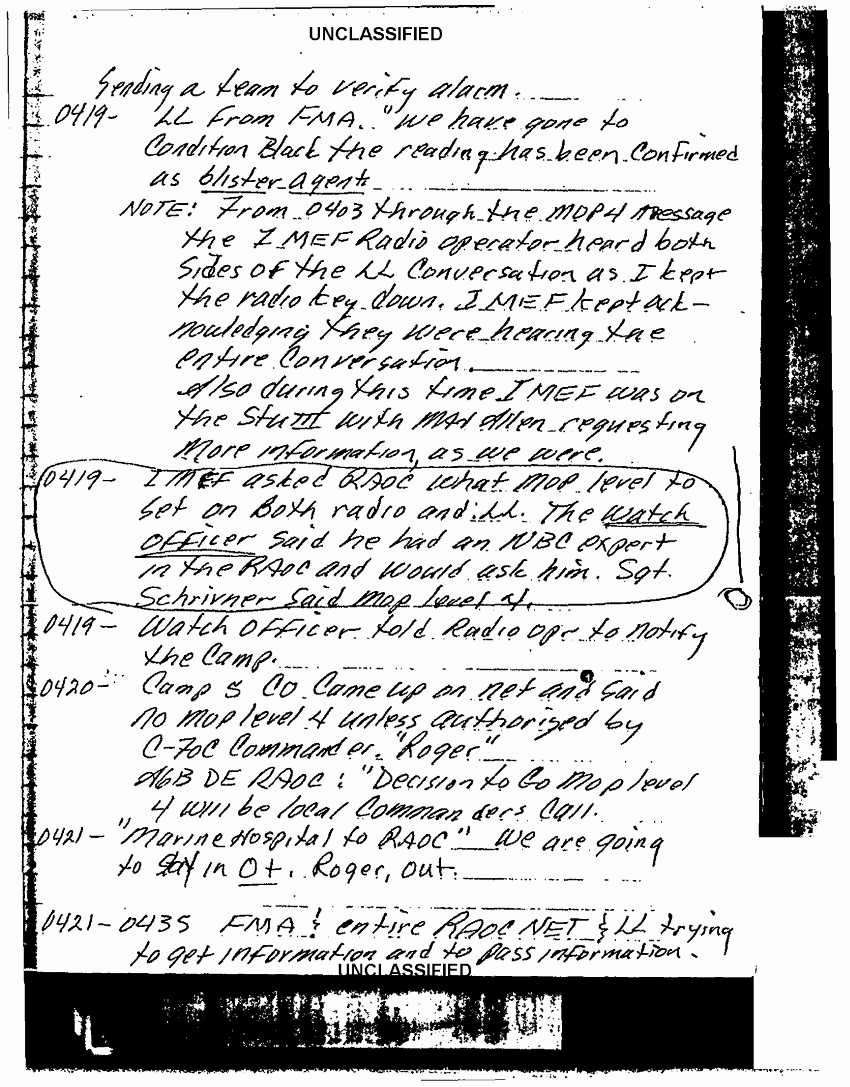 UNCLASSIFIED
Sending a team to verify alarm.
0419- LL From FMA. "We have gone to
Condition Black the reading has been Confirmed
as blister agent
NOTE: From 0403 through the MOP4 message
the I MEF Radio operator heard both
Sides of the LL Conversation as I kept
the radio key down. I MEF kept ack-
nowledging they were hearing the
entire Conversation.
Also during this time I MEF was on
the Stu III with MAJ Allen requesting
More information, as we were.
0419- I MEF asked RAOC what mop level to
Set on Both radio and LL. The Watch
Officer Said he had an NBC expert
in the RAOC and would ask him. Sgt.
Schrivner Said mop level 4.
0419- Watch Officer told Radio opr to notify
the Camp.
0420- Camp 5 CO Came up on net and Said
no mop level 4 unless authorized by
C-7OC Commander. "Roger"
A6B DE RAOC: "Decision to Go Mop level
4 will be local Commanders Call.
0421- "Marine Hospital to RAOC" We are going
to Stay in O+. Roger, out.
0421-0435 FMA & entire RAOC NET & LL trying
to get information and to pass information.
UNCLASSIFIED